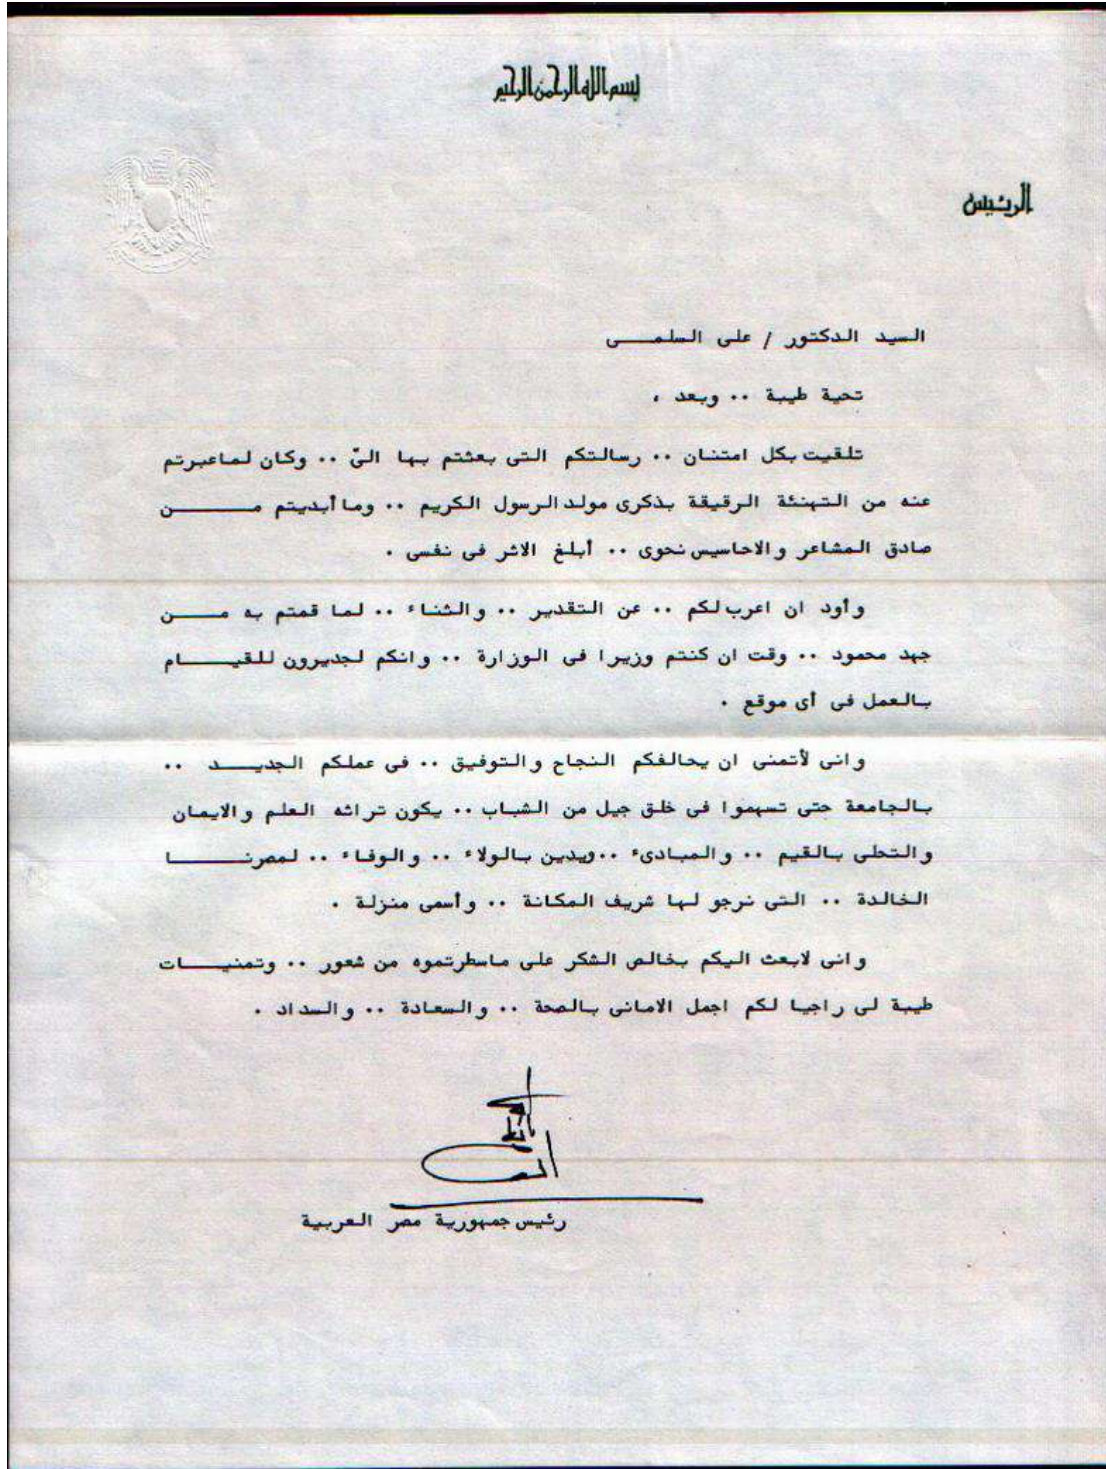 بسم الله الرحمن الرحيم
الرئيس
السيد الدكتور / على السلمـــى
تحية طيبة .. وبعد ،
تلقيت بكل امتنان .. رسالتكم التى بعثتم بها الىّ .. وكان لماعبرتم
عنه من التهنئة الرقيقة بذكرى مولد الرسول الكريم .. وما أبديتم مـــــن
صادق المشاعر والاحاسيس نحوى .. أبلغ الاثر فى نفسى .
وأود ان اعرب لكم .. عن التقدير .. والثناء .. لما قمتم به مـــن
جهد محمود .. وقت ان كنتم وزيرا فى الوزارة .. وانكم لجديرون للقيـــام
بالعمل فى أى موقع .
وانى لأتمنى ان يحالفكم النجاح والتوفيق .. فى عملكم الجديـــد ..
بالجامعة حتى تسهموا فى خلق جيل من الشباب .. يكون تراثه العلم والايمان
والتحلى بالقيم .. والمبادىء ..ويدين بالولاء .. والوفاء .. لمصرنـــــا
الخالدة .. التى نرجو لها شريف المكانة .. وأسمى منزلة .
وانى لابعث اليكم بخالص الشكر على ماسطرتموه من شعور .. وتمنيـــات
طيبة لى راجيا لكم اجمل الامانى بالصحة .. والسعادة .. والسداد .
رئيس جمهورية مصر العربية